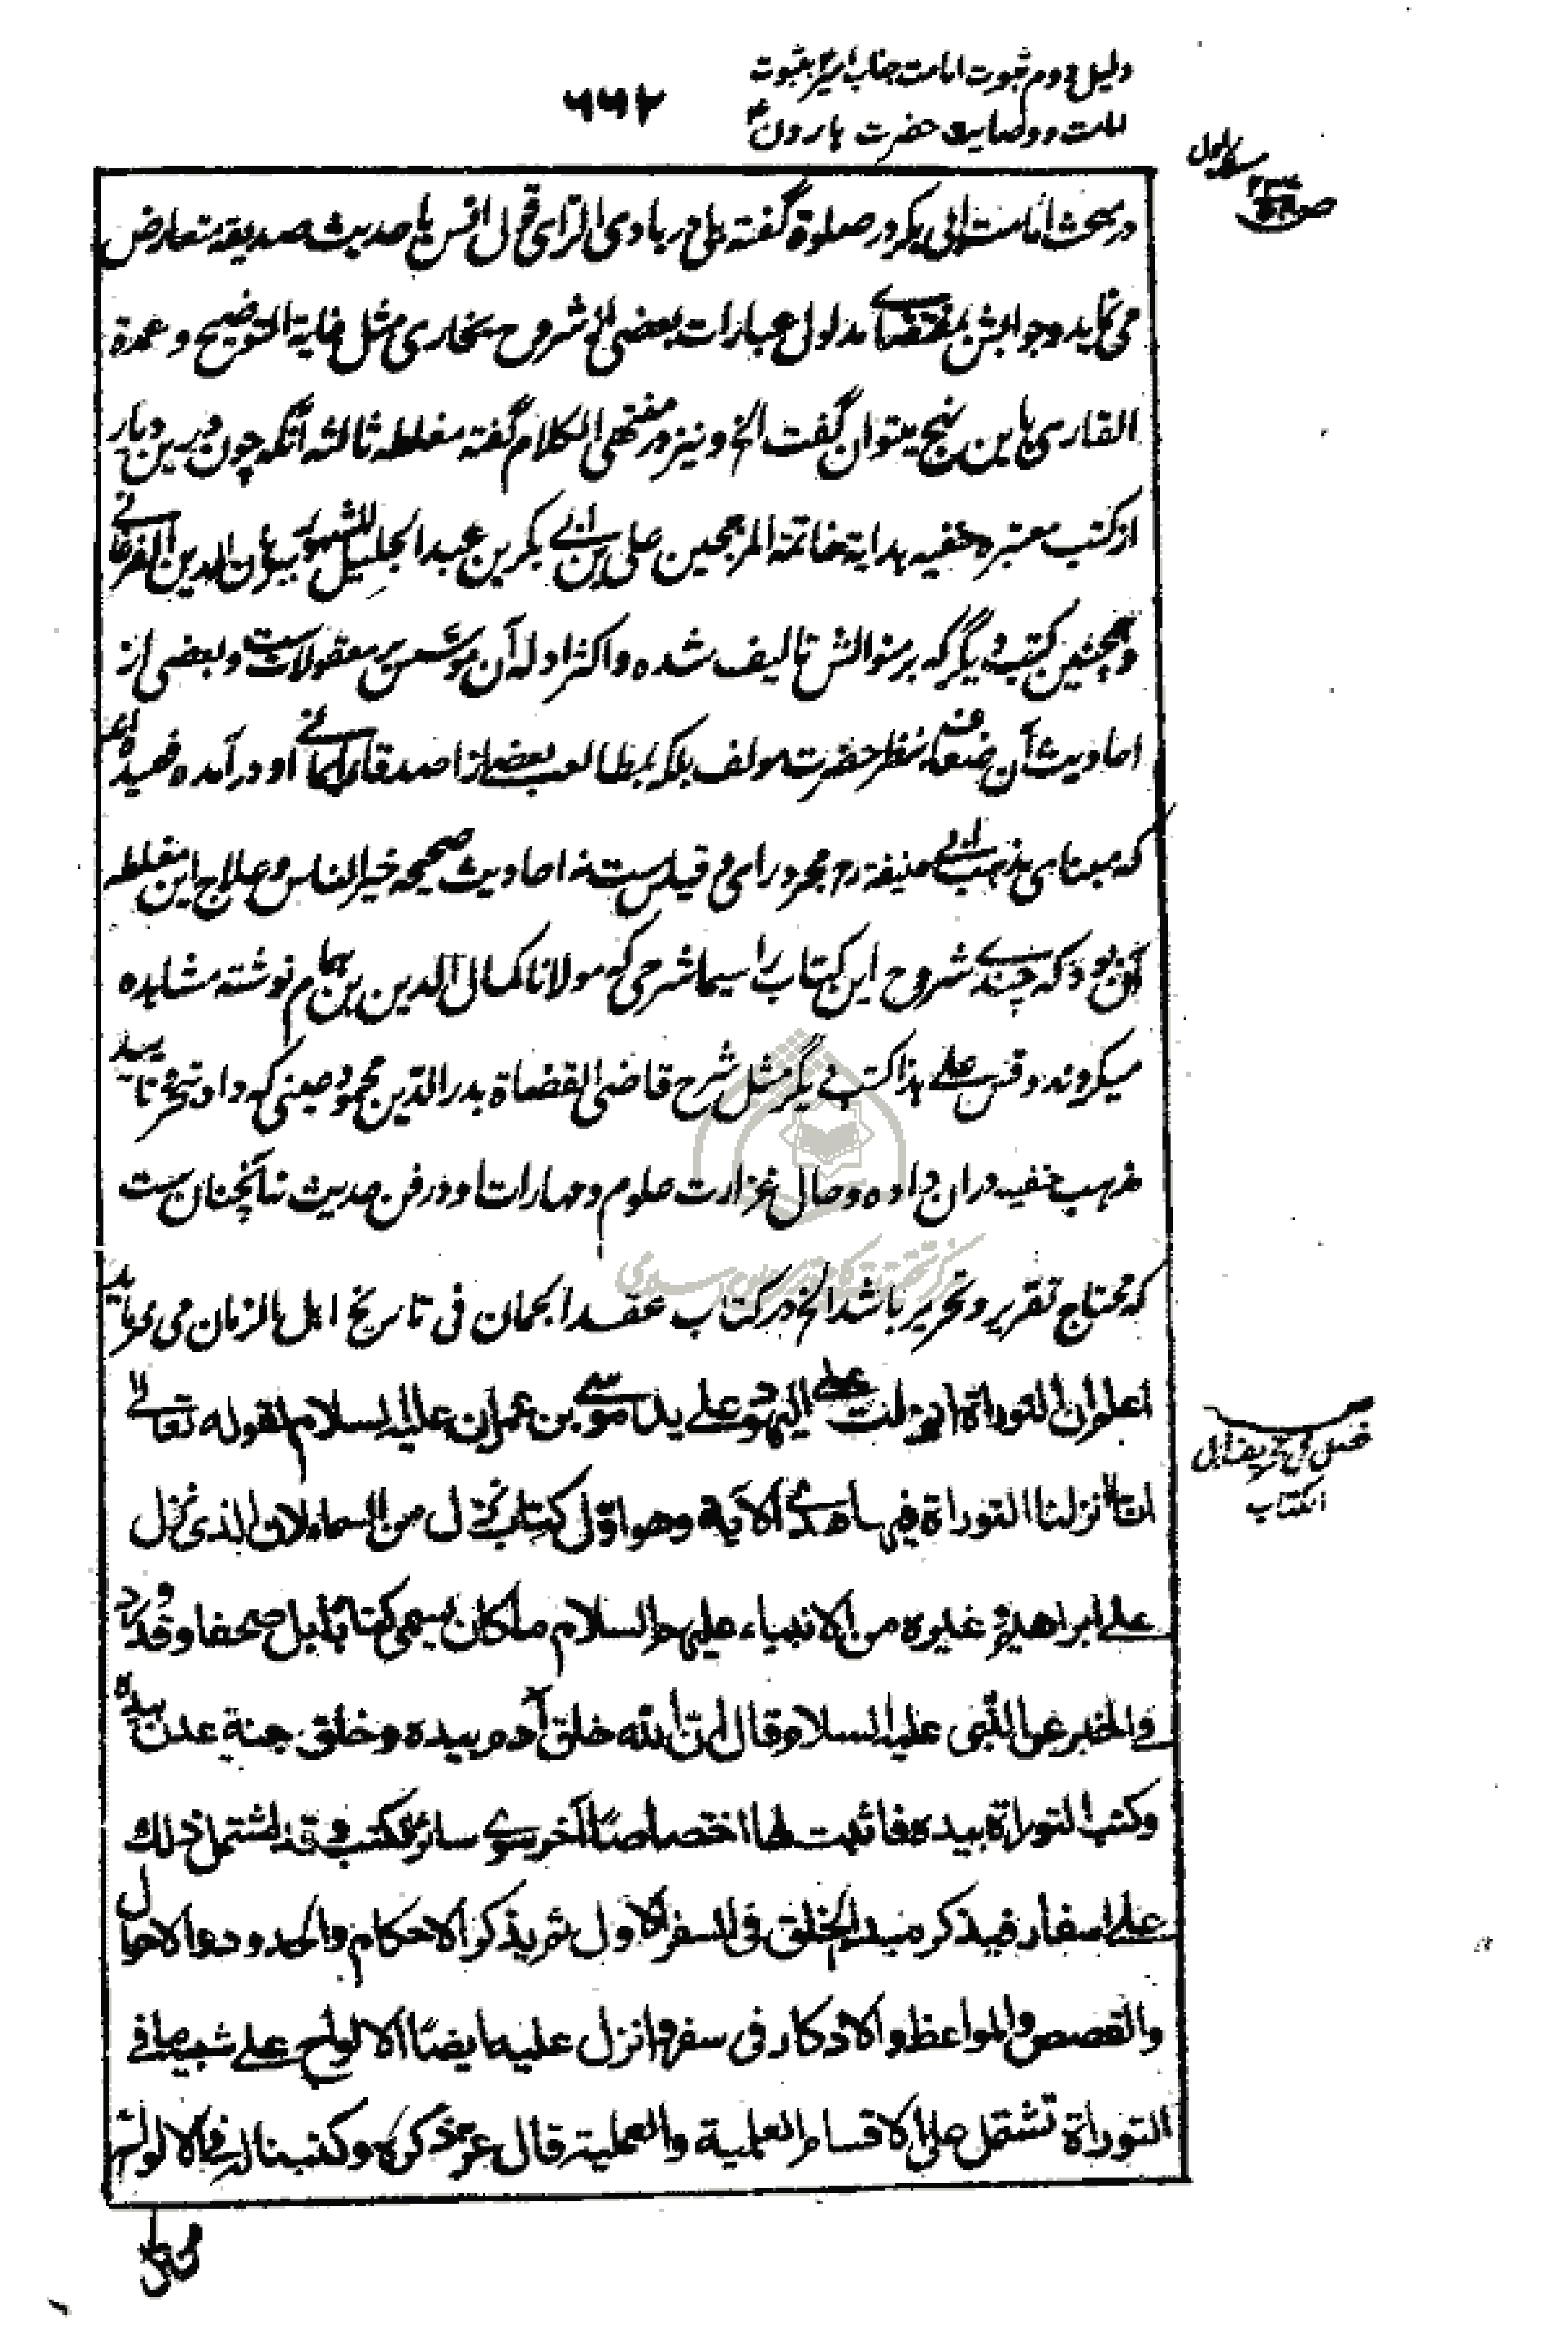 دلیل دوم ثبوت امامت جناب امیر بثبوت
۶۶۲
امامت و وصایت حضرت هارون
در مبحث امامت ابی بکر در صلوة گفته بلی در بادی الرای قول انس با حدیث صدیقه متعارض
می نماید و جوابش بمقتضای مدلول عبارات بعضی از شروح بخاری مثل غایة التوضیح و عمدة
القاری باین نهج میتوان گفت الخ و نیز در منتهی الکلام گفته مغلطه ثالثه آنکه چون درین دیار
از کتب معتبره حنفیه هدایة خاتمة المرجحین علی بن ابی بکر بن عبد الجلیل المشهور ببرهان الدین الفرغانی
و همچنین کتب دیگر که بر منوالش تالیف شده و اکثر ادله آن موسس بر معقولات ست و بعضی از
احادیث آن ضعاف بنظر حضرت مولف بلکه بمطالعه بعضی از اصدقای او درآمده فهمیده
که مبنای مذهب ابی حنیفه رح مجرد رای و قیاس ست نه احادیث صحیحه خیر الناس و علاج این مغلطه
آن بود که چندی شروح این کتاب را سیما شرحی که مولانا کمال الدین بن همام نوشته مشاهده
میکردند و قس علی هذا کتب دیگر مثل شرح قاضی القضاة بدر الدین محمود عینی که داد تبحر تائید
مذهب حنفیه دران داده و حال غزارت علوم و مهارات او در فن حدیث نه آنچنان ست
که محتاج تقریر و تحریر باشد الخ در کتاب عقد الجمان فی تاریخ اهل الزمان می فرماید
اعلم ان التوراة انزلت علی الیهود علی ید موسی بن عمران علیه السلام لقوله تعالی
انا انزلنا التوراة فیها هدی الآیة وهو اول کتاب نزل من السماء لان الذی نزل
علی ابراهیم و غیره من الانبیاء علیهم السلام ما کان یسمی کتابا بل صحفا وقد ورد
فی الخبر عن النبی علیه السلام وقال ان الله خلق آدم بیده وخلق جنة عدن بیده
وکتب التوراة بیده فاثبت لها اختصاصا آخر سوی سائر الکتب وقد اشتمل ذلک
علی اسفار فیذکر مبدا الخلق فی السفر الاول ثم یذکر الاحکام والحدود والاحوال
والقصص والمواعظ والاذکار فی سفر وانزل علیه ایضا الالواح علی شبه ما فی
التوراة تشتمل علی الاقسام العلمیة والعملیة قال عز ذکره وکتبنا له فی الالواح
من کل
الکتاب